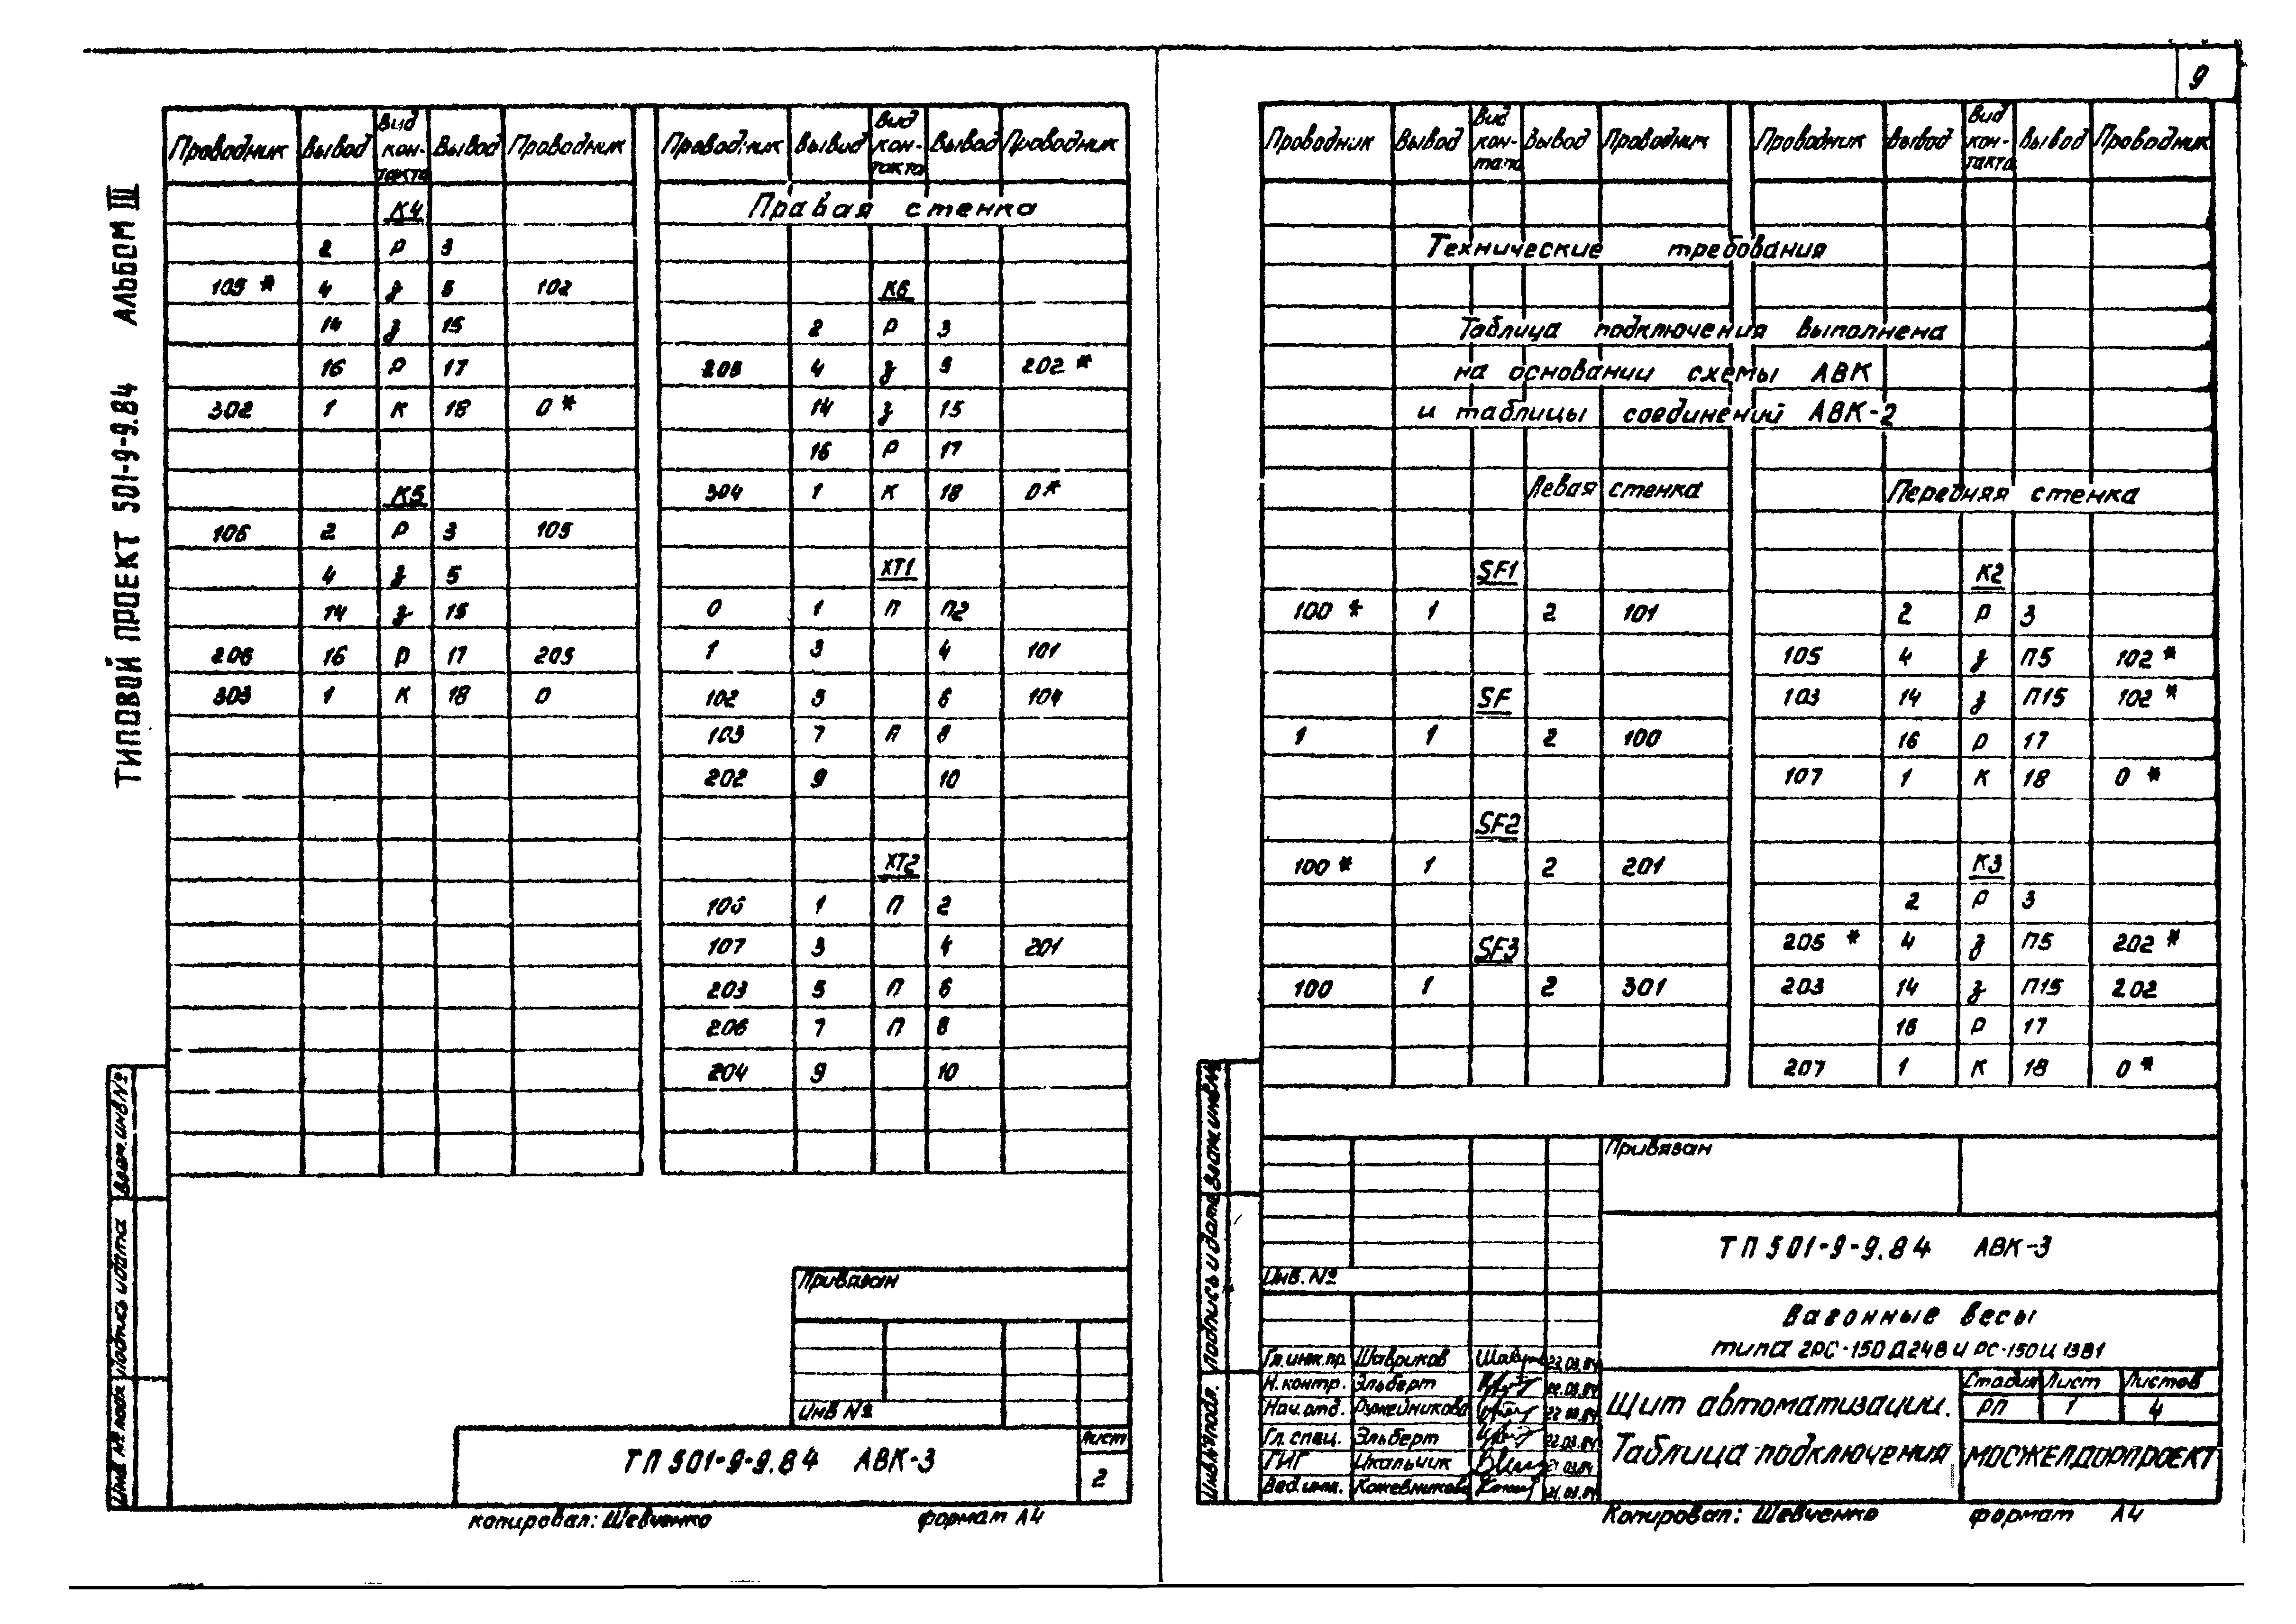 9
ТИПОВОЙ ПРОЕКТ 501-9-9.84 АЛЬБОМ III
Проводник Вывод Вид кон-такта Вывод Проводник
К4
2 Р 3
105 * 4 З 5 102
14 З 15
16 Р 17
302 1 К 18 0 *
К5
106 2 Р 3 105
4 З 5
14 З 15
206 16 Р 17 205
303 1 К 18 0
Проводник Вывод Вид кон-такта Вывод Проводник
Правая стенка
К6
2 Р 3
205 4 З 5 202 *
14 З 15
16 Р 17
304 1 К 18 0 *
ХТ1
0 1 П П2
1 3 4 101
102 5 6 104
103 7 П 8
202 9 10
ХТ2
106 1 П 2
107 3 4 201
203 5 П 6
206 7 П 8
204 9 10
Привязан
Инв №
ТП 501-9-9.84 АВК-3
Лист
2
Инв № подл Подпись и дата Взам.инв№
копировал: Шевченко формат А4
Проводник Вывод Вид кон-такта Вывод Проводник
Проводник Вывод Вид кон-такта Вывод Проводник
Технические требования
Таблица подключения выполнена
на основании схемы АВК
и таблицы соединений АВК-2
Левая стенка
SF1
100 * 1 2 101
SF
1 1 2 100
SF2
100 * 1 2 201
SF3
100 1 2 301
Передняя стенка
К2
2 Р 3
105 4 З П5 102 *
103 14 З П15 102 *
16 Р 17
107 1 К 18 0 *
К3
2 Р 3
205 * 4 З П5 202 *
203 14 З П15 202
16 Р 17
207 1 К 18 0 *
Привязан
ТП 501-9-9.84 АВК-3
Инв. №
Вагонные весы
типа 2РС-150Д24В и РС-150Ц13В1
Гл.инж.пр. Шавриков 22.03.84
Н.контр. Эльберт 22.03.84
Нач.отд. Ружейникова 22.03.84
Гл.спец. Эльберт 22.03.84
ГИГ Икальчик 21.03.84
Вед.инж. Кожевникова 21.03.84
Щит автоматизации.
Таблица подключения
Стадия Лист Листов
РП 1 4
МОСЖЕЛДОРПРОЕКТ
Инв.№подл. Подпись и дата Взам.инв№
Копировал: Шевченко формат А4